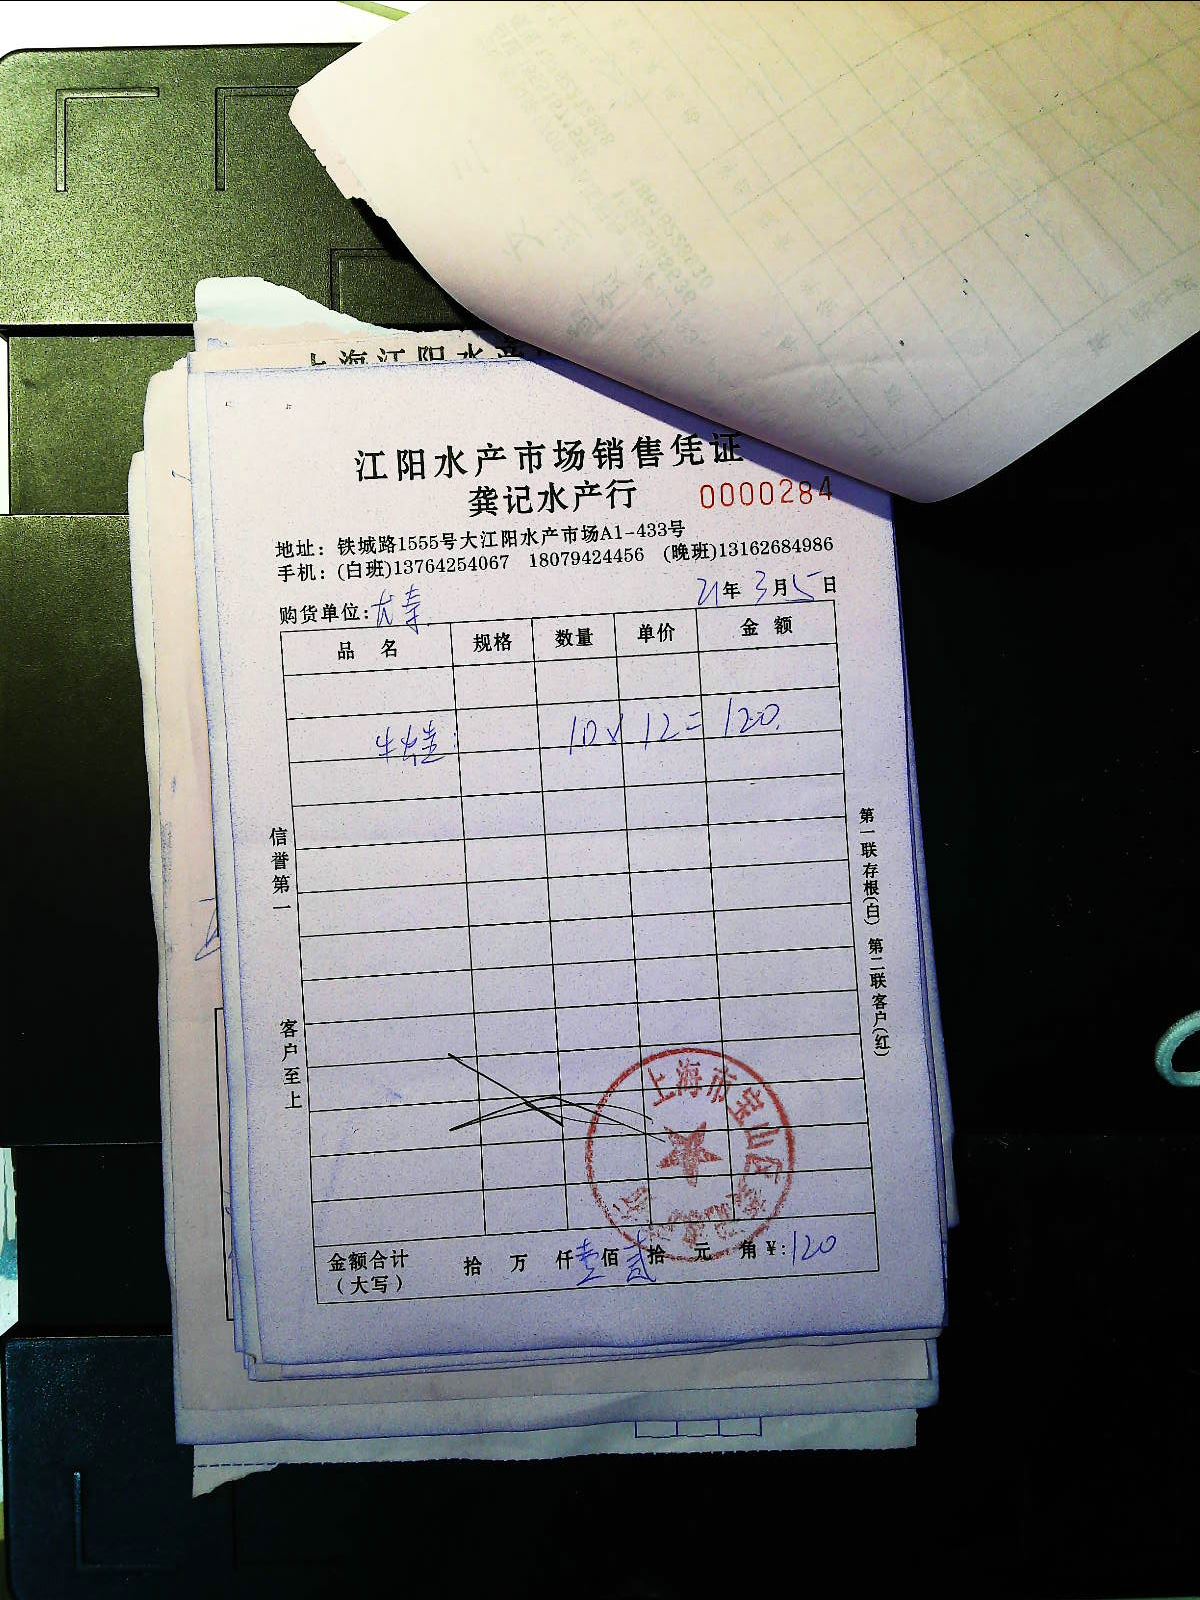 上海江阳水产
江阳水产市场销售凭证
龚记水产行 0000284
地址：铁城路1555号大江阳水产市场A1-433号
手机：(白班)13764254067 18079424456 (晚班)13162684986
购货单位: 21年3月5日
品名 规格 数量 单价 金额
牛蛙 10 × 12 = 120
信誉第一
客户至上
第一联存根(白) 第二联客户(红)
上海市宝山区
金额合计(大写) 拾 万 仟 壹佰 贰拾 元 角 ¥:120